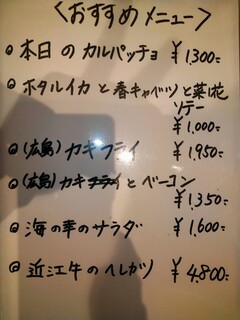 <おすすめメニュー>
◎ 本日のカルパッチョ ¥1,300-
◎ ホタルイカと春キャベツと菜の花
ソテー
¥1,000-
◎ (広島)カキフライ ¥1,950-
◎ (広島)カキフライとベーコン
¥1,350-
◎ 海の幸のサラダ ¥1,600-
◎ 近江牛のヘレカツ ¥4,800-